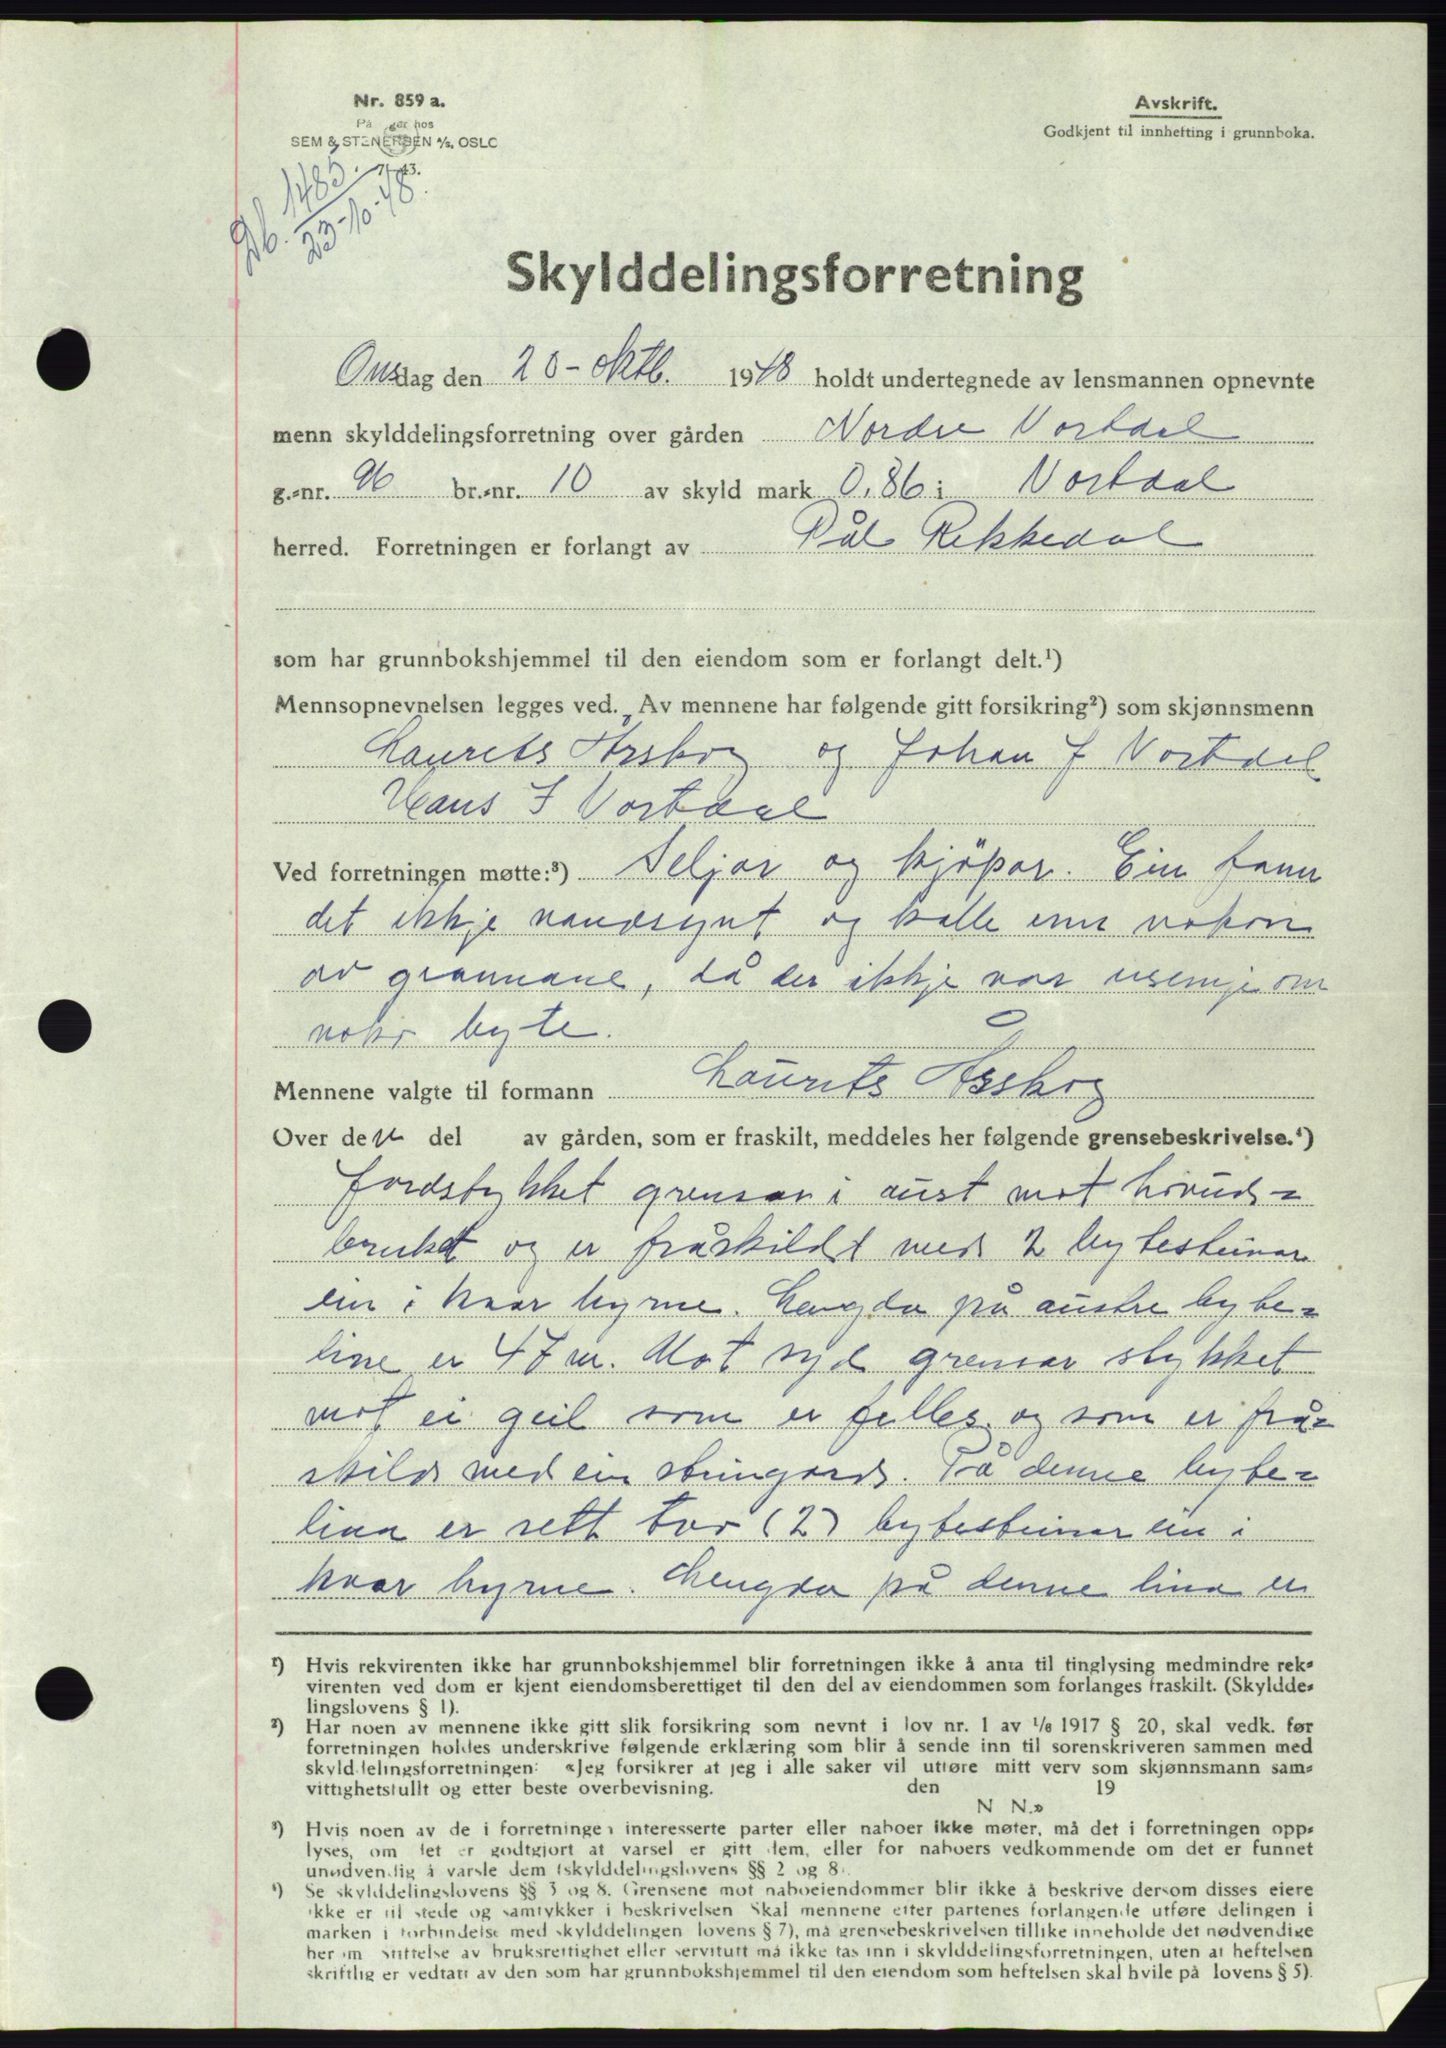 Nr. 859 a.
På ger hos
SEM & STENERSEN A/S, OSLO
7—43.
Avskrift.
Godkjent til innhefting i grunnboka.
Db. 1485.
23-10-48.
Skylddelingsforretning
Onsdag den 20-oktb. 1948 holdt undertegnede av lensmannen opnevnte
menn skylddelingsforretning over gården Nordre Vartdal
g.-nr. 96 br.-nr. 10 av skyld mark 0,86 i Vartdal
herred. Forretningen er forlangt av Pål Rekkedal
som har grunnbokshjemmel til den eiendom som er forlangt delt.¹)
Mennsopnevnelsen legges ved. Av mennene har følgende gitt forsikring²) som skjønnsmenn
Laurits Årskog og Johan J Vartdal
Hans J Vartdal
Ved forretningen møtte:³) Seljar og kjöpar. Ein fann
det ikkje naudsynt og kalle inn nokon
av grannane, då der ikkje var usemje om
noko byte.
Mennene valgte til formann Laurits Årskog
Over den del av gården, som er fraskilt, meddeles her følgende grensebeskrivelse.⁴)
Jordstykket grensar i aust mot hovuds-
bruket og er fråskildt med 2 bytesteinar
ein i kvar hyrne. Lengda på austre byte-
line er 47 m. Mot syd grensar stykket
mot ei geil som er felles og som er frå-
skild med ein steingard. På denne byte-
lina er sett tvo (2) bytesteinar ein i
kvar hyrne. Lengda på denne lina er
¹) Hvis rekvirenten ikke har grunnbokshjemmel blir forretningen ikke å anta til tinglysing medmindre rek-
virenten ved dom er kjent eiendomsberettiget til den del av eiendommen som forlanges fraskilt. (Skyldde-
lingslovens § 1).
²) Har noen av mennene ikke gitt slik forsikring som nevnt i lov nr. 1 av 1/8 1917 § 20, skal vedk. før
forretningen holdes underskrive følgende erklæring som blir å sende inn til sorenskriveren sammen med
skylddelingsforretningen: «Jeg forsikrer at jeg i alle saker vil utføre mitt verv som skjønnsmann sam-
vittighetsfullt og etter beste overbevisning. den 19
N N.»
³) Hvis noen av de i forretningen interesserte parter eller naboer ikke møter, må det i forretningen opp-
lyses, om det er godtgjort at varsel er gitt dem, eller for naboers vedkommende om det er funnet
unødvendig å varsle dem (skylddelingslovens §§ 2 og 8).
⁴) Se skylddelingslovens §§ 3 og 8. Grensene mot naboeiendommer blir ikke å beskrive dersom disses eiere
ikke er til stede og samtykker i beskrivelsen Skal mennene etter partenes forlangende utføre delingen i
marken i forbindelse med skylddelingen lovens § 7), må grensebeskrivelsen tillike inneholde det nødvendige
her om Stiftelse av bruksrettighet eller servitutt må ikke tas inn i skylddelingsforretningen, uten at heftelsen
skriftlig er vedtatt av den som har grunnbokshjemmel til den eiendom som heftelsen skal hvile på lovens § 5).